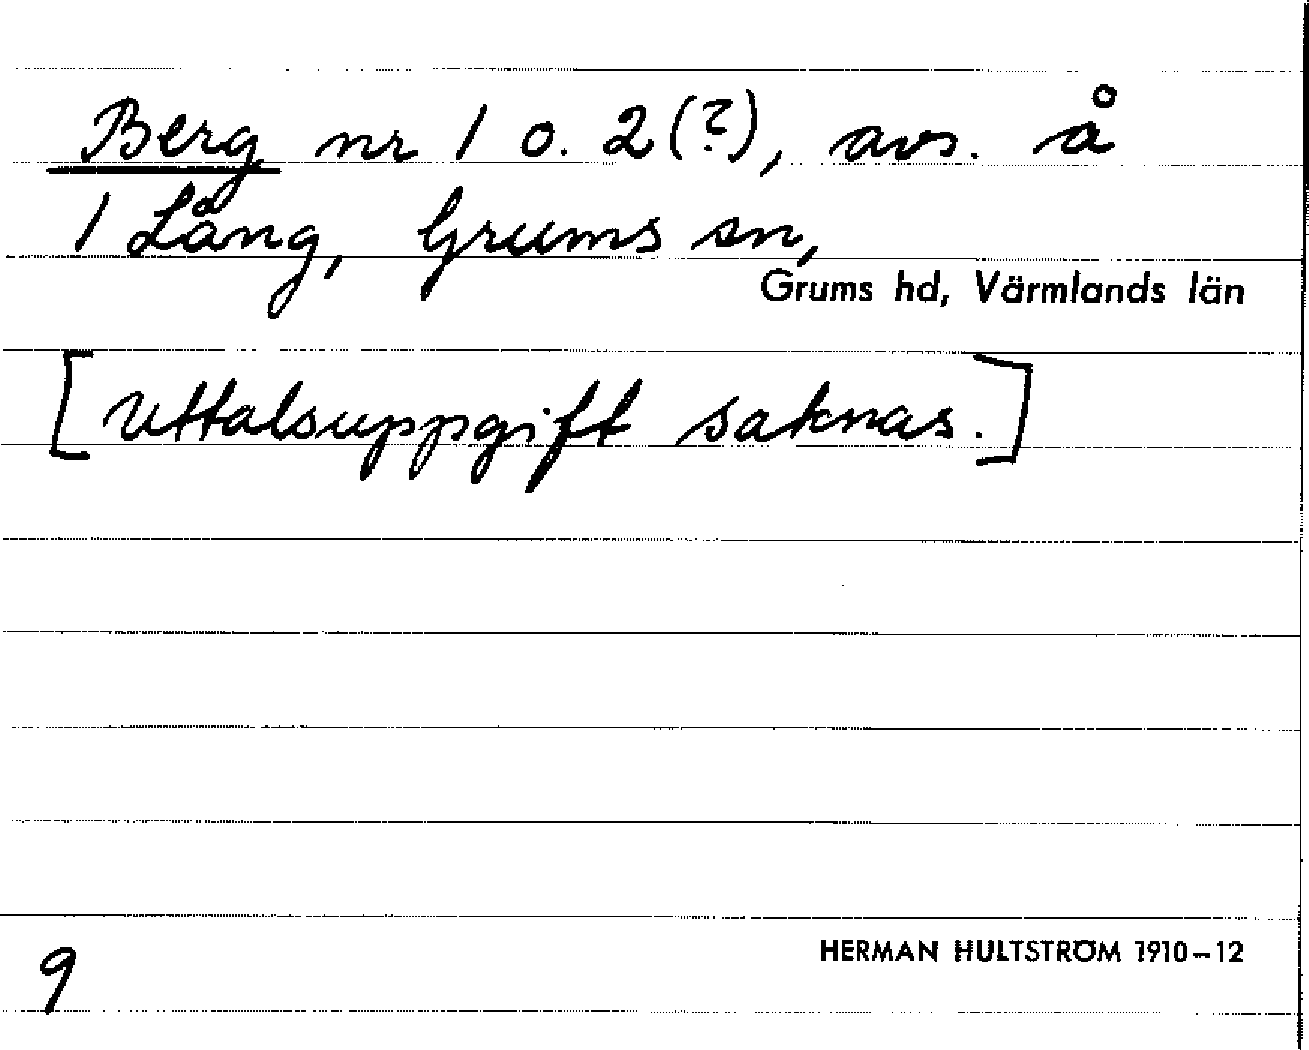 Berg nr 1 o. 2(?), avs. å
1 Lång, Grums sn,
Grums hd, Värmlands län
[Uttalsuppgift saknas.]
HERMAN HULTSTRÖM 1910–12
9